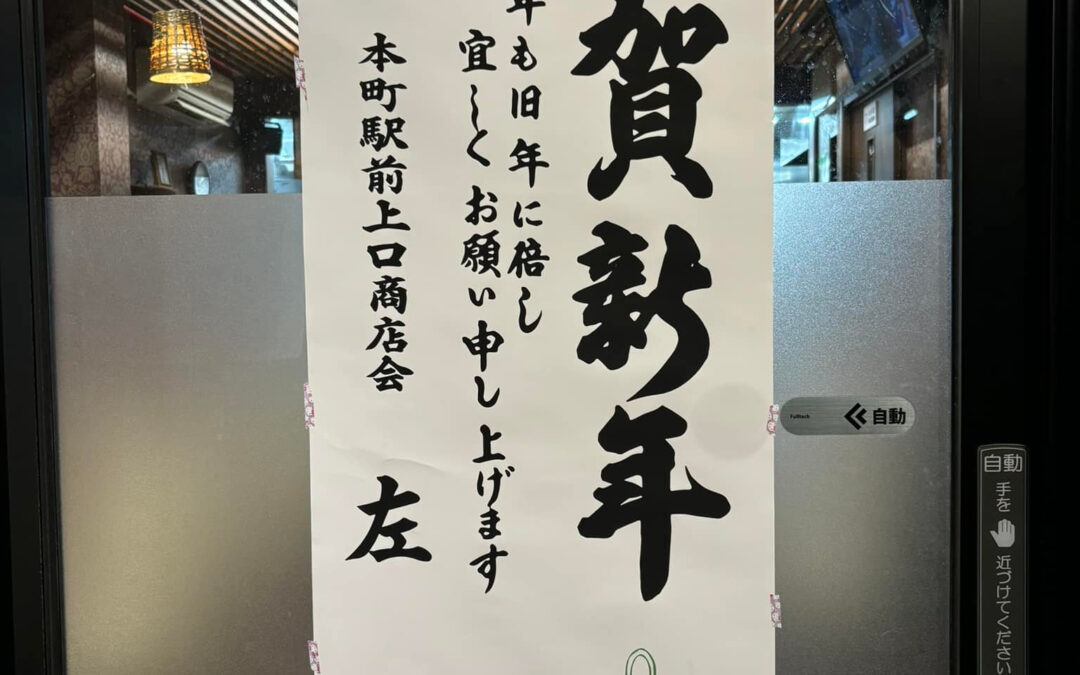 賀新年
年も旧年に倍し
宜しくお願い申し上げます
本町駅前上口商店会
左
Fulltech
自動
自動
手を
近づけてください